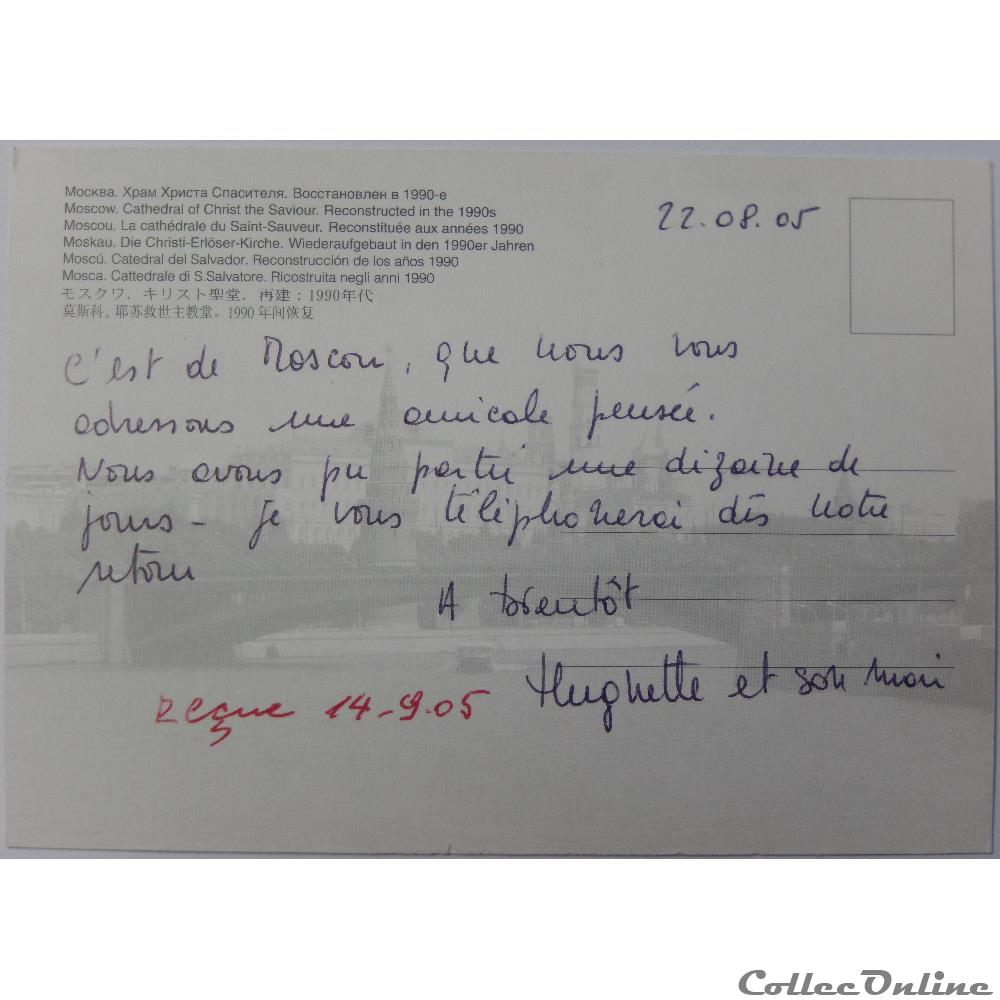 Москва. Храм Христа Спасителя. Восстановлен в 1990-е
Moscow. Cathedral of Christ the Saviour. Reconstructed in the 1990s
Moscou. La cathédrale du Saint-Sauveur. Reconstituée aux années 1990
Moskau. Die Christi-Erlöser-Kirche. Wiederaufgebaut in den 1990er Jahren
Moscú. Catedral del Salvador. Reconstrucción de los años 1990
Mosca. Cattedrale di S.Salvatore. Ricostruita negli anni 1990
モスクワ．キリスト聖堂．再建：1990年代
莫斯科。耶苏救世主教堂。1990年间恢复
22.08.05
C'est de Moscou, que nous vous
adressons une amicale pensée.
Nous avons pu partir une dizaine de
jours - je vous téléphonerai dès notre
retour
A bientôt
Hughette et son mari
reçue 14-9.05
CollecOnline